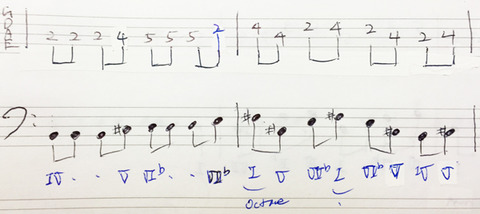 G
D
A
E
2 2 2 4 5 5 5 2 4 4 2 4 2 4 2 4
♯ ♯ ♯ ♯ ♯ ♯
IV · · V VIb · · VIIb I V VIIb I VIIb V IV V
Octave